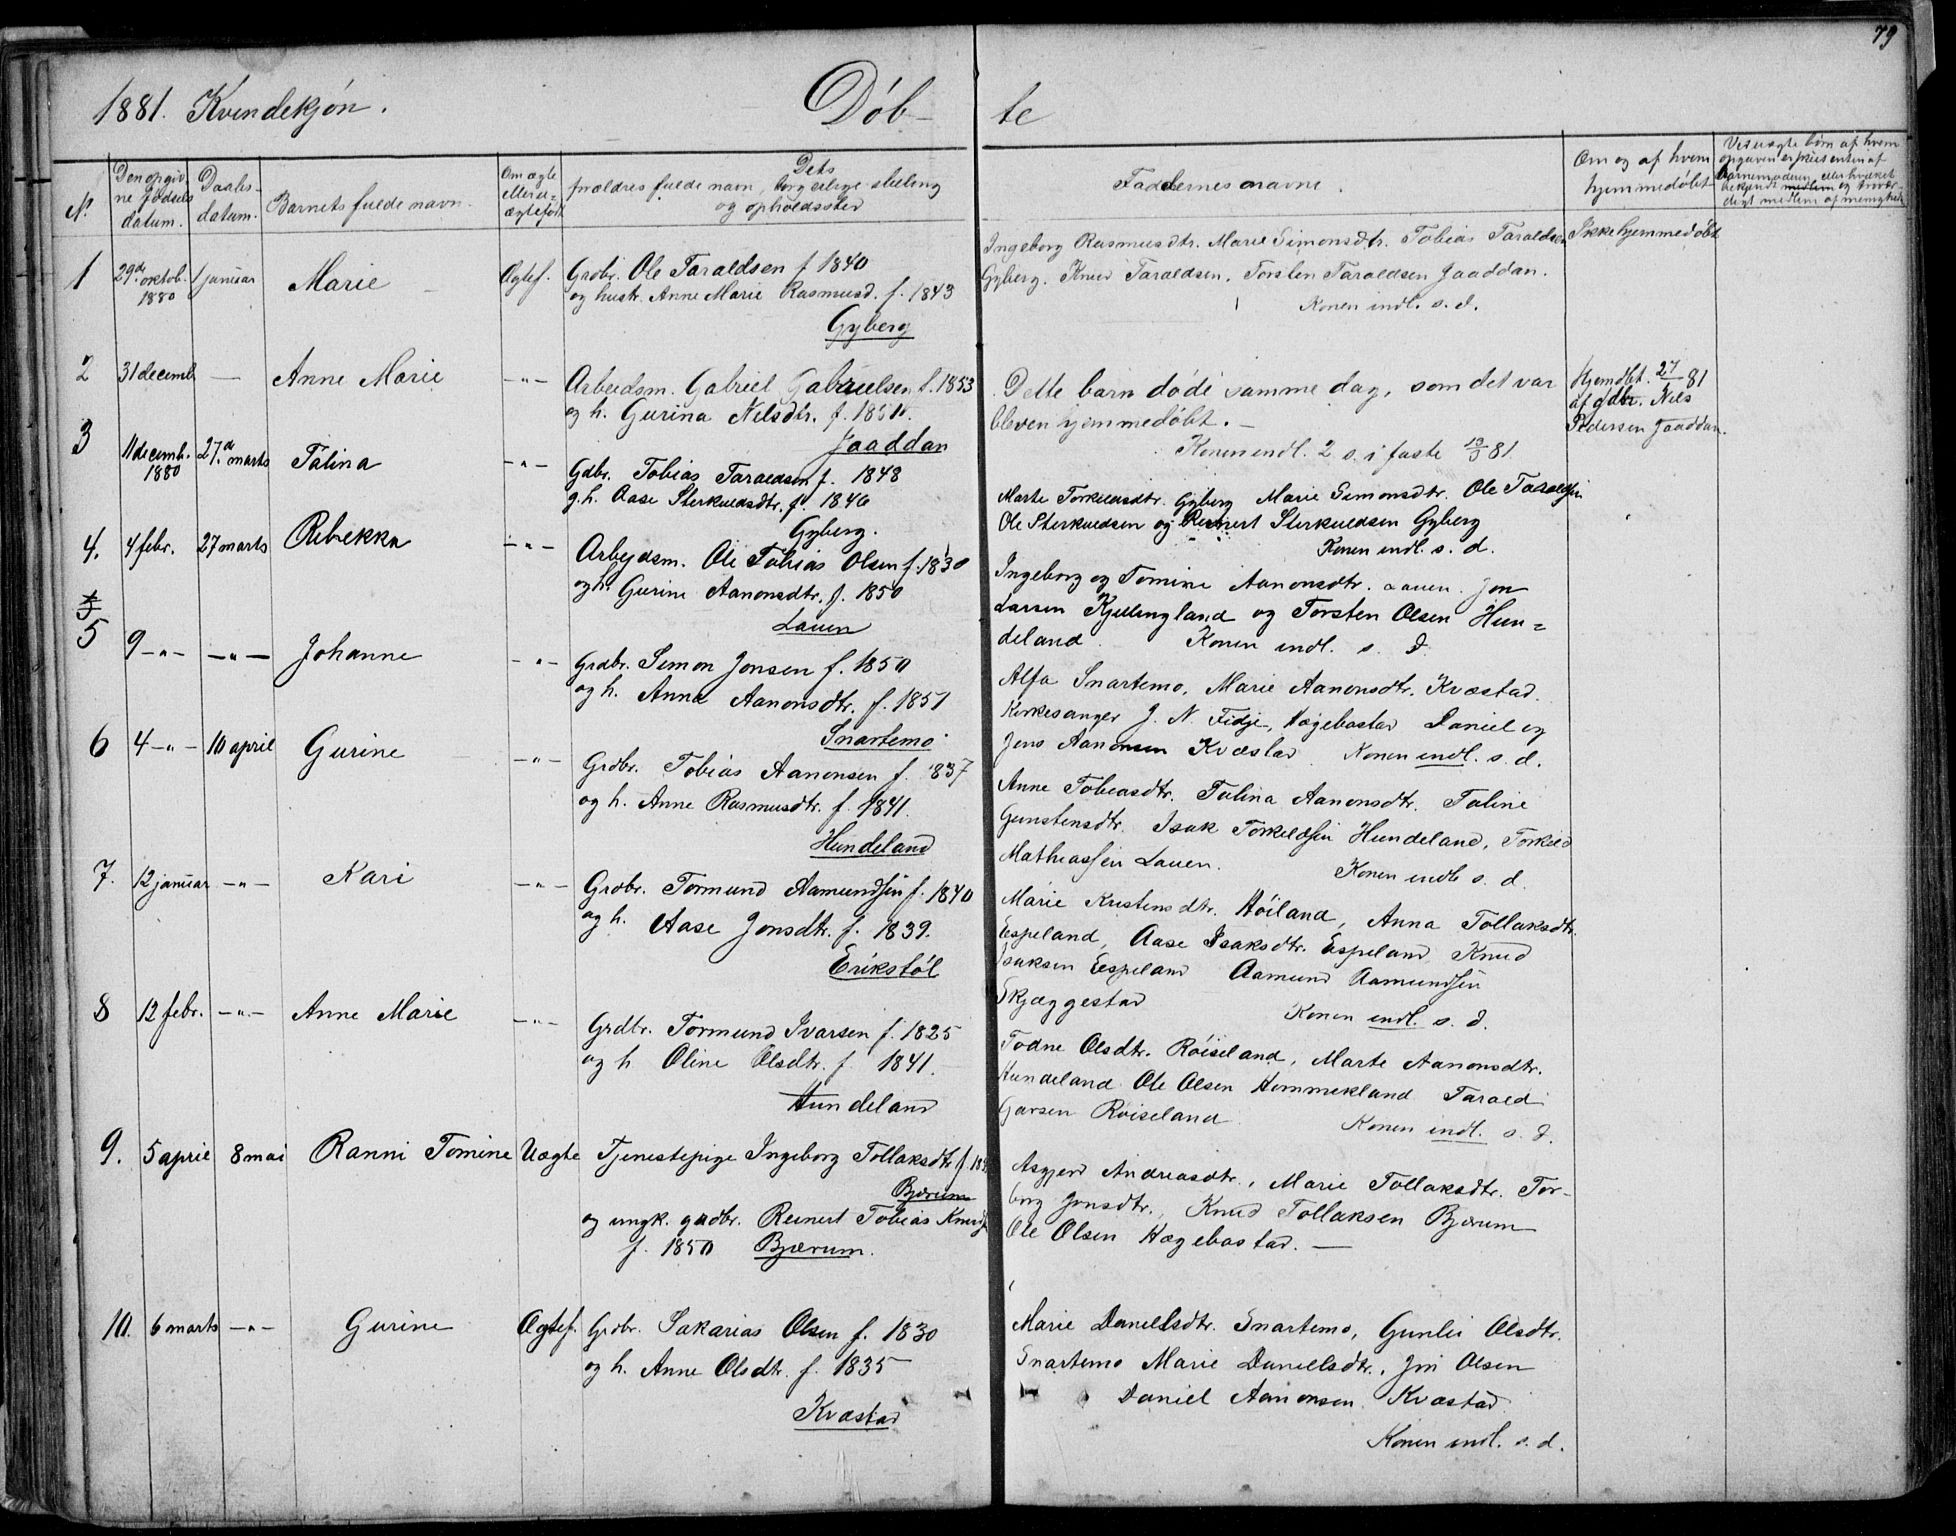 79
1881. Kvindekjøn. Døb- te
N. Den opgiv- ne fødsels datum. Daabs- datum. Barnets fulde navn. Om ægte eller u- ægtefødt Dets forældres fulde navn, borgerlige stilling og opholdssted
Faddernes navne. Om og af hvem hjemmedøbt
1 29de oktob. 1880 1 januar Marie Ægtef. Grdbr. Ole Taraldsen f 1840
og hustr. Anne Marie Rasmusd. f. 1843
Gyberg
Ingeborg Rasmusdtr. Marie Simonsdtr. Tobias Taraldsen Ikke hjemmedøbt
Gyberg. Knud Taraldsen. Torsten Taraldsen Jaaddan.
Konen indl. s. d.
2 31 decemb — Anne Marie -"- Arbeidsm. Gabriel Gabrielsen f. 1853
og h. Gurina Nilsdtr. f.
Jaaddan
Dette barn døde samme dag, som det var
bleven hjemmedøbt. –
Konen indl. 2 s. i faste 81.
Hjemdbt. 27 81
af gdbr. Nils
Pedersen Jaaddan.
3 11 decemb. 1880 27.d marts Talina -"- Gdbr. Tobias Taraldsen f. 1848
g. h. Aase Sterkuldsdtr. f. 1846
Gyberg.
Marte Torkildsdtr. Gyberg Marie Simonsdtr. Ole Taraldsen
Ole Sterkuldsen og Reinert Sterkuldsen Gyberg
Konen indl. s. d.
4. 4 febr. 27 marts Rebekka -"- Arbejdsm. Ole Tobias Olsen f. 1830
og h. Gurine Aanonsdtr. f. 1850
Lauen
Ingeborg og Tomine Aanonsdtr. Lauen. Jon
Larsen Kjellingland og Torsten Olsen Hun=
deland. Konen indl. s. d.
5 9 -"- -"- Johanne -"- Grdbr. Simon Jonsen f. 1850
og h. Anna Aanonsdtr. f. 1851
Snartemo
Alfa Snartemo, Marie Aanonsdtr. Kvæstad.
Kirkesanger J. N. Fidje, Hægebostad Daniel og
Jens Aanonsen Kvæstad. Konen indl. s. d.
6 4 -"- 10 april Gurine -"- Grdbr. Tobias Aanonsen f. 1837
og h. Anne Rasmusdtr. f. 1841.
Hundeland
Anne Tobiasdtr. Talina Aanonsdtr. Taline
Gunstensdtr. Isak Torkildsen Hundeland, Torkild
Mathiassen Lauen. Konen indl s. d.
7. 12 januar -"- Kari -"- Grdbr. Tormund Aamundsen f. 1840
og h. Aase Jonsdtr. f. 1839.
Erikstøl
Marie Kristensdtr. Høiland, Anna Tollaksdtr.
Espeland, Aase Isaksdtr. Espeland, Knud
Isaksen Espeland Aamund Aamundsen
Skjæggestad Konen indl. s. d.
8 12 febr. -"- Anne Marie -"- Grdbr. Tormund Ivarsen f. 1825
og h Oline Olsdtr. f 1841.
Hundeland
Todne Olsdtr. Røiseland, Marte Aanonsdtr.
Hundeland. Ole Olsen Hommekland Tarald
Garsen Røiseland. Konen indl. s. d.
9. 5 april 8 mai Ranni Tomine Uægte Tjenestepige Ingeborg Tollaksdtr f.
Bjærum
og ungk. gdbr. Reinert Tobias Knuds
f. 1850 Bjærum.
Asgjerd Andreasdtr., Marie Tollaksdtr. Tor-
borg Jonsdtr., Knud Tollaksen Bjærum
Ole Olsen Hægebostad. —
10. 6 marts -"- Gurine Ægtef. Grdbr. Sakarias Olsen f. 1830
og h. Anne Olsdtr. f. 1835
Kvæstad
Marie Danielsdtr. Snartemo, Gunlei Olsdtr.
Snartemo Marie Danielsdtr., Jon Olsen
Daniel Aanonsen Kvæstad
Konen indl. s. d.